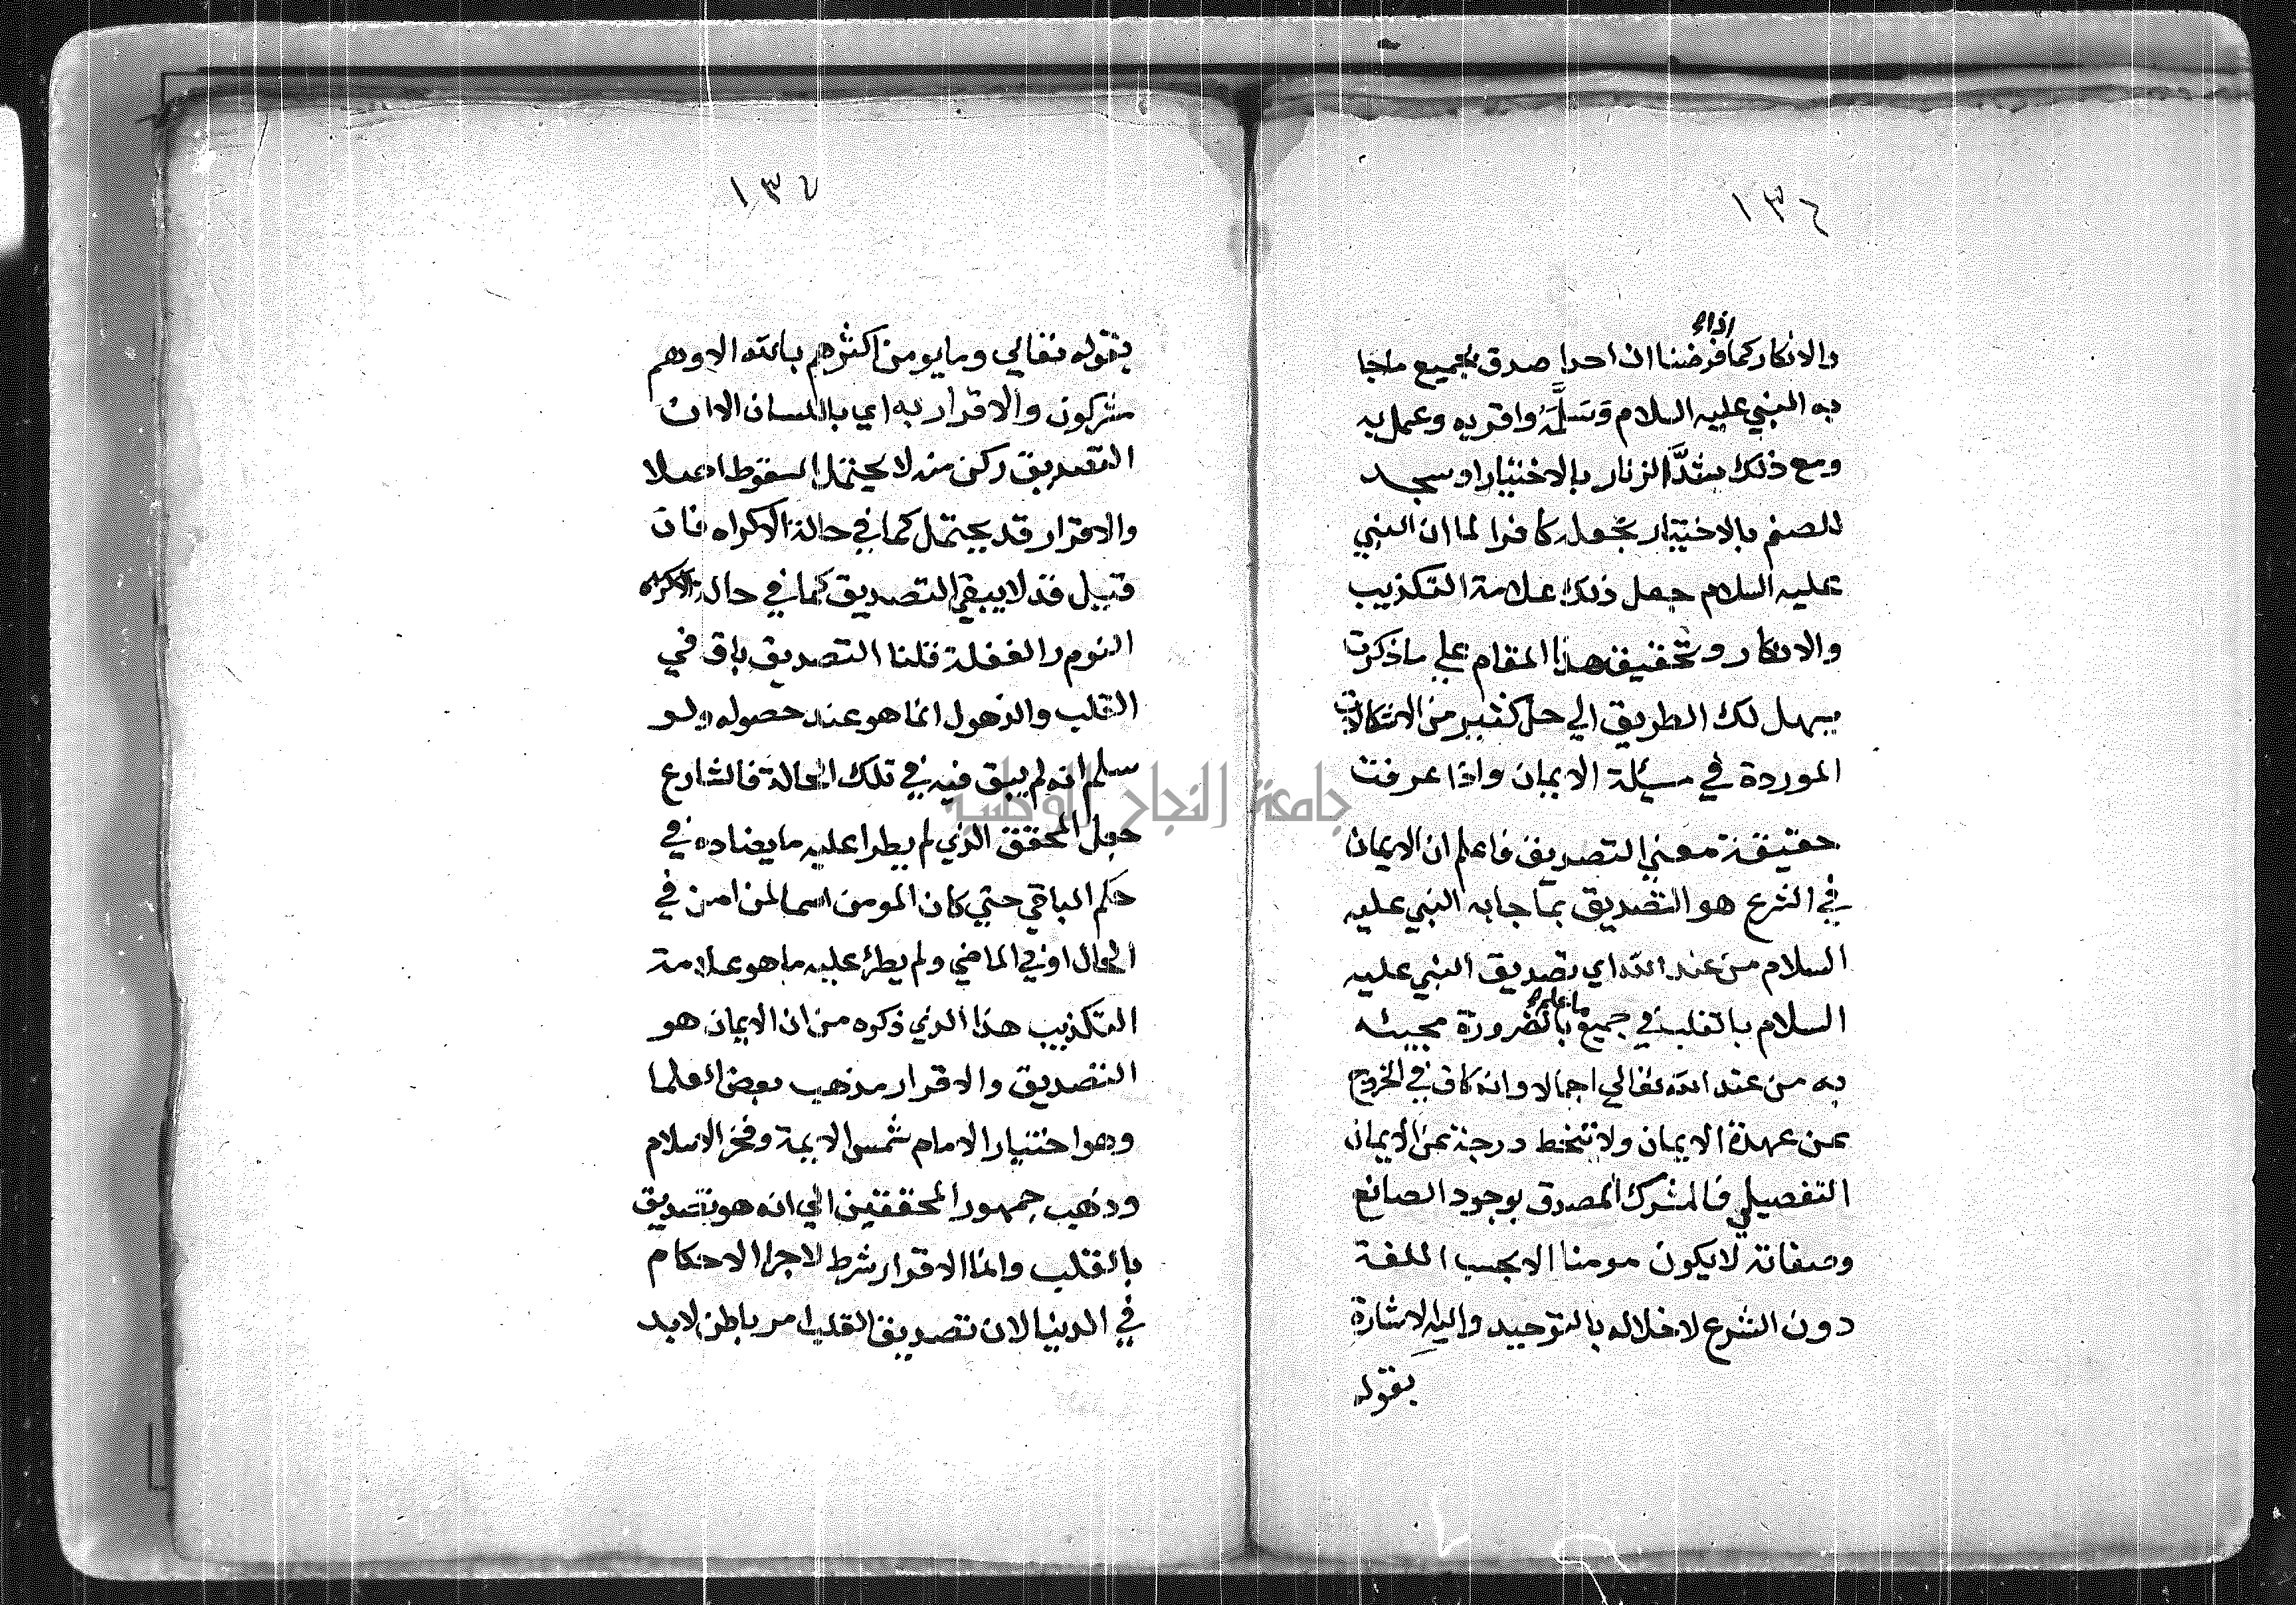 ١٣٦
اذا
والانكار كما فرضنا ان احدا صدق بجميع ماجا
به النبي عليه السلام وسلَّمه واقر به وعمل به
ومع ذلك شدَّ الزنار بالاختيار او سجد
للصنم بالاختيار نجعله كافرا لما ان النبي
عليه السلام جعل ذلك علامة التكذيب
والانكار وتحقيق هذا المقام علي ماذكرت
يسهل لك الطريق الي حل كثير من الاشكالات
الموردة في مسئلة الايمان واذا عرفت
حقيقة معني التصديق فاعلم ان الايمان
في الشرع هو التصديق بما جا به النبي عليه
السلام من عند الله اي تصديق النبي عليه
ما علم
السلام بالقلب في جميع بالضرورة مجيئه
به من عند الله تعالي اجمالا وانه كاف في الخروج
عن عهدة الايمان ولا تنحط درجته عن الايمان
التفصيلي فالمشرك المصدق بوجود الصانع
وصفاته لايكون مومنا الا بحسب اللغة
دون الشرع لاخلاله بالتوحيد واليه الاشارة
بقوله
١٣٧
بقوله تعالي وما يومن اكثرهم بالله الا وهم
مشركون والاقرار به اي باللسان الا ان
التصديق ركن منه لا يحتمل السقوط اصلا
والاقرار قد يحتمله كما في حالة الاكراه فان
قيل قد لايبقي التصديق كما في حالة
النوم والغفلة قلنا التصديق باق في
القلب والذهول انما هو عند حصوله ولو
سلم انه لم يبق فيه في تلك الحالة فالشارع
جعل المحقق الذي لم يطرا عليه ما يضاده في
حكم الباقي حتي كان المومن اسما لمن امن في
الحال او في الماضي ولم يطرئ عليه ما هو علامة
التكذيب هذا الذي ذكره من ان الايمان هو
التصديق والاقرار مذهب بعض العلما
وهو اختيار الامام شمس الايمة وفخر الاسلام
وذهب جمهور المحققين الي انه هو تصديق
بالقلب وانما الاقرار شرط لاجرا الاحكام
في الدنيا لان تصديق القلب امر باطن لابد
جامعة النجاح الوطنية